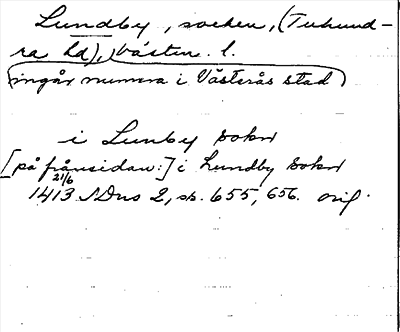 Lundby, socken, (Tuhund-
ra hd), västm. l.
(ingår numera i Västerås stad)
i Lunby sokn
[på frånsidan:] i Lundby sokn
21/6
1413 SDns 2, sp. 655, 656. orig.